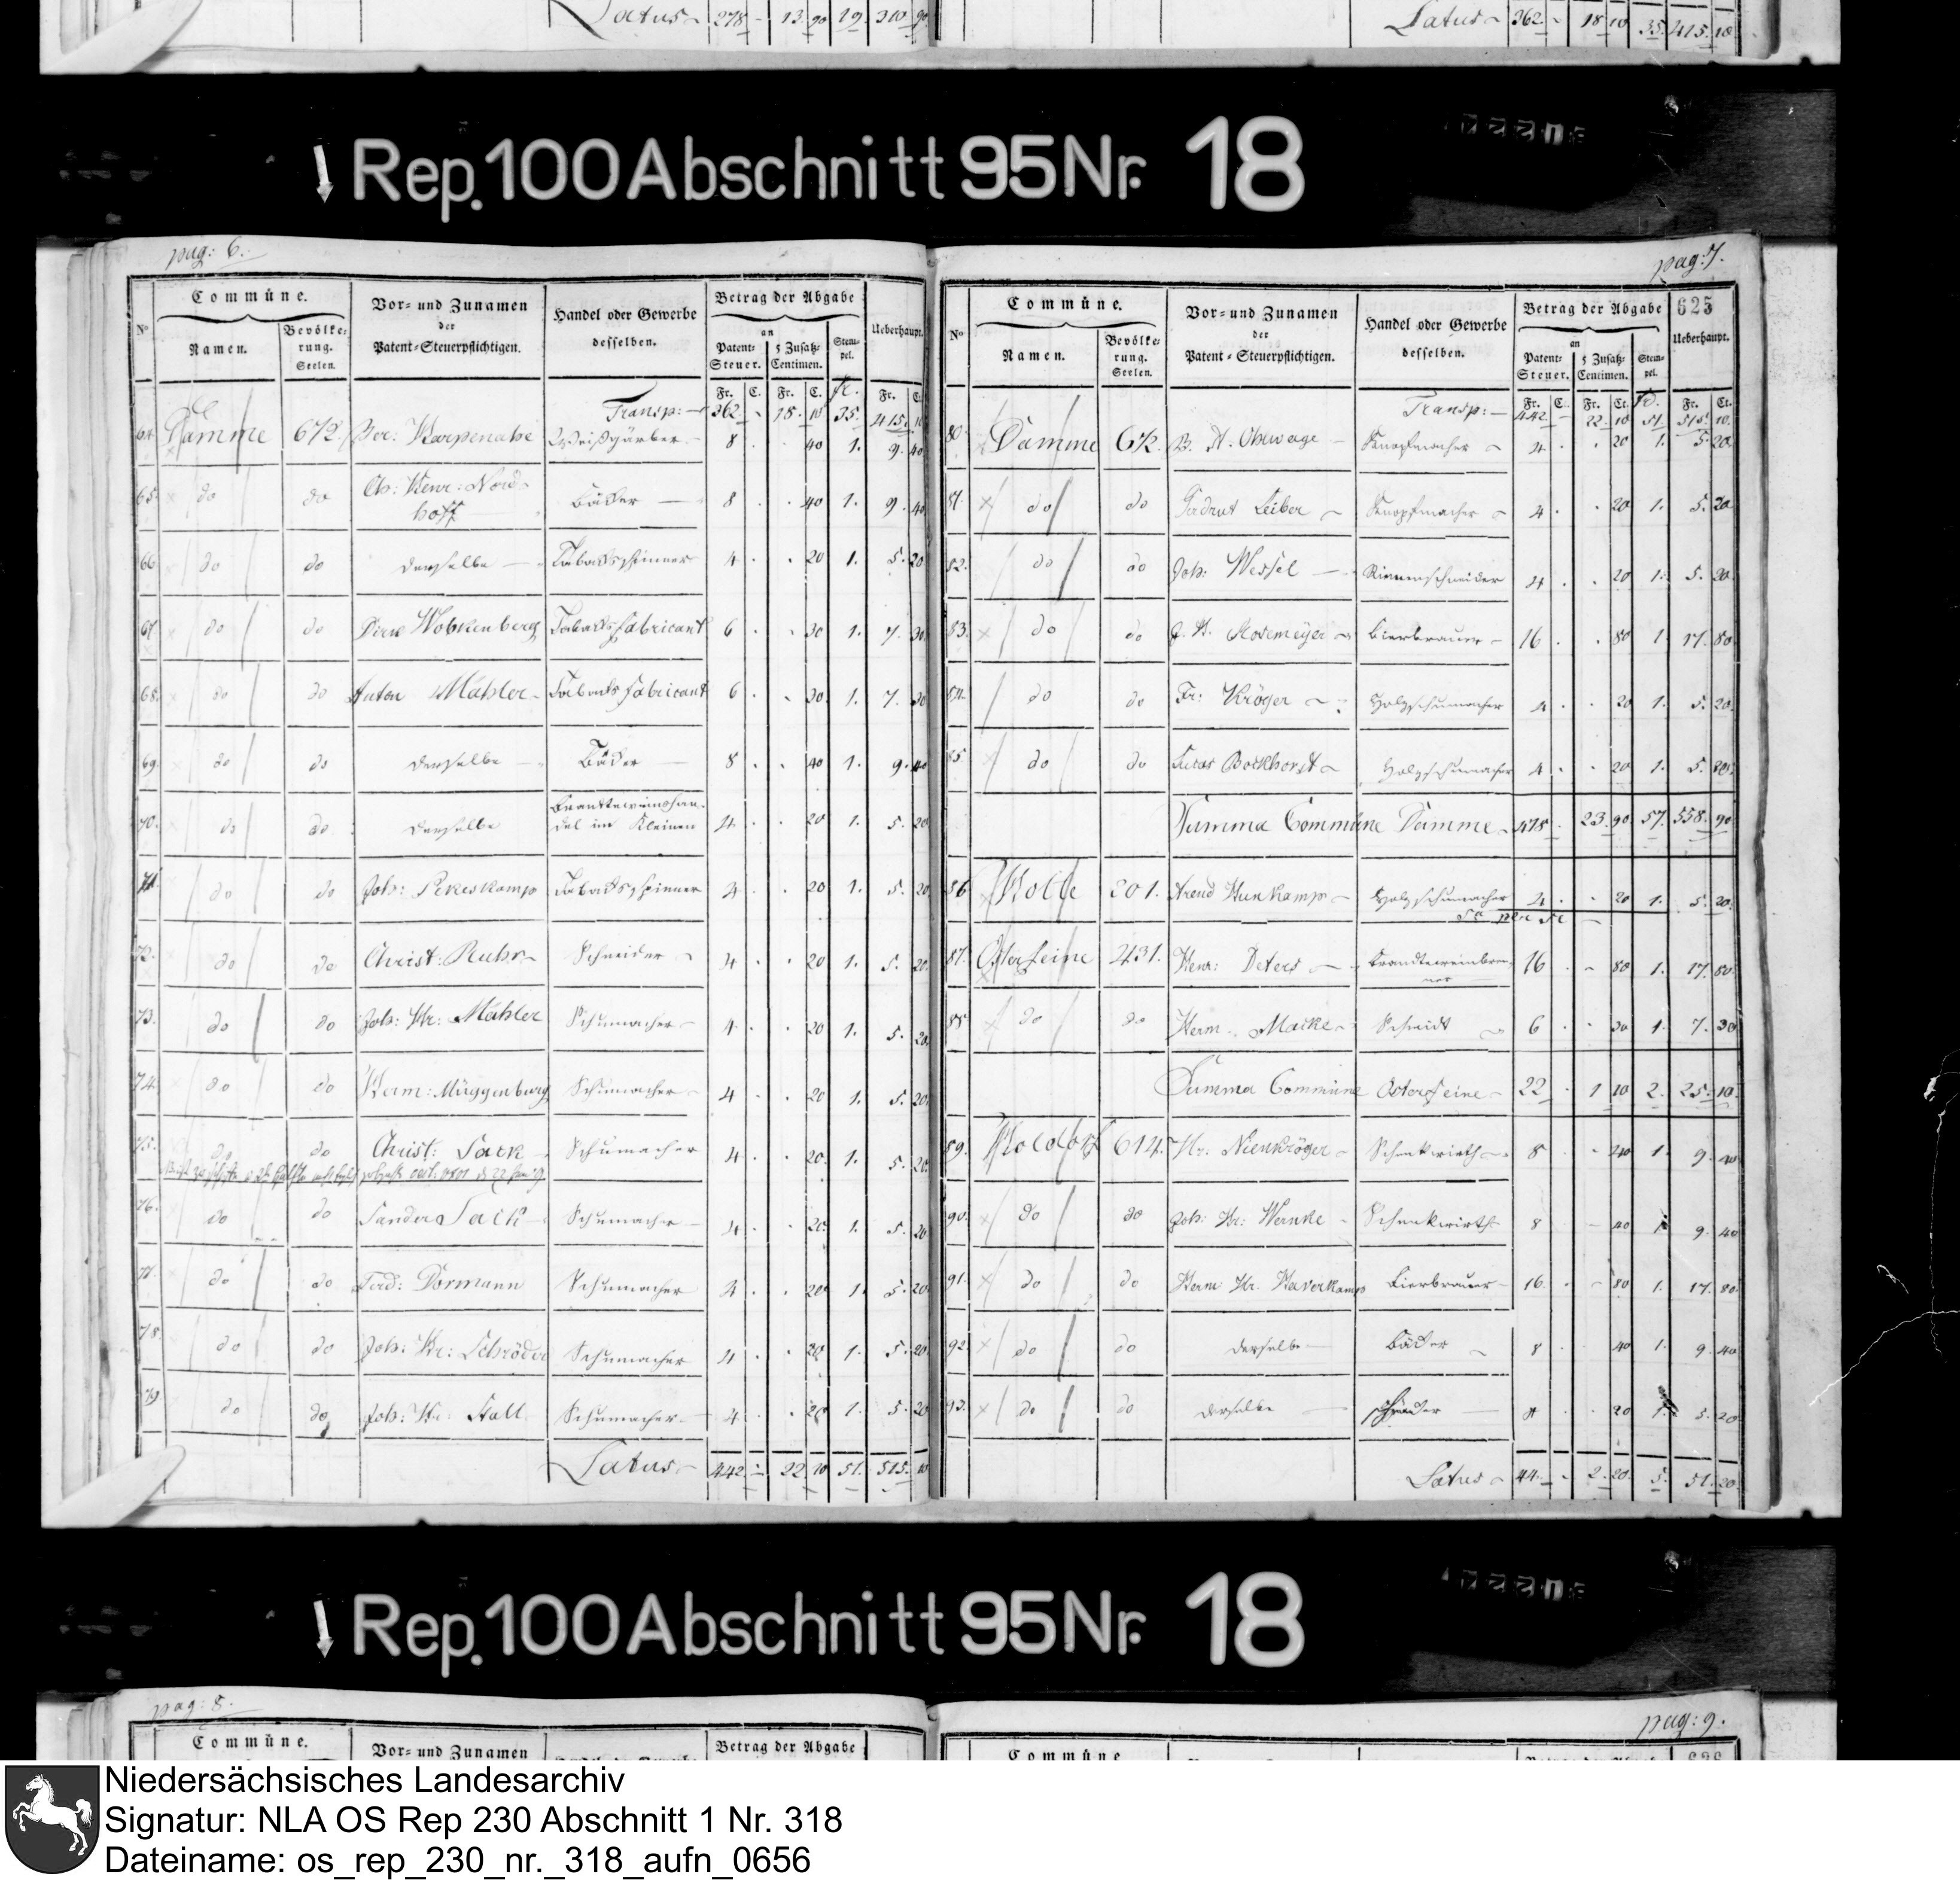 Latus 278 - 13. 90 19. 310. 90
Latus 362 - 18 10 35. 415. 10
Rep. 100 Abschnitt 95 Nr. 18
pag: 6.
Commüne.
Vor- und Zunamen
der
Patent-Steuerpflichtigen.
Handel oder Gewerbe
desselben.
Betrag der Abgabe
an
Ueberhaupt.
No
Namen.
Bevölke-
rung.
Seelen.
Patent-
Steuer.
5 Zusatz-
Centimen.
Stem-
pel.
Fr. C. Fr. C. fr. Fr. C.
Transp: 362 - 18. 10 35. 415. 10
64. Damme 672. Weißgärber 8 . . 40 1. 9. 40
65. do do Ch: Henr: Nord-
hoff Bäcker 8 . . 40 1. 9. 40
66 do do derselbe Tabacksspinner 4 . . 20 1. 5. 20
67 do do Dirk Wobkenberg Tabacksfabricant 6 . . 30 1. 7. 30
68. do do Anton Mähler Tabacksfabricant 6 . . 30 1. 7. 30
69. do do derselbe Bäcker 8 . . 40 1. 9. 40
70. do do derselbe Branntweinshan-
del im Kleinen 4 . . 20 1. 5. 20
71. do do Joh: Tabacksspinner 4 . . 20 1. 5. 20
72. do do Christ: Ruhr Schneider 4 . . 20 1. 5. 20
73. do do Joh: Hr: Mähler Schumacher 4 . . 20 1. 5. 20
74. do do Herm: Müggenburg Schumacher 4 . . 20 1. 5. 20
75. do do Christ: Sack Schumacher 4 . . 20 1. 5. 20
76. do do Sander Sack Schumacher 4 . . 20 1. 5. 20
77. do do Ferd: Dormann Schumacher 4 . . 20 1. 5. 20
78. do do Joh: Hr: Schröder Schumacher 4 . . 20 1. 5. 20
79 do do Joh: Hr: Stall Schumacher 4 . . 20 1. 5. 20
Latus 442. - 22. 10 51. 515. 10
pag: 7.
625
Commüne.
Vor- und Zunamen
der
Patent-Steuerpflichtigen.
Handel oder Gewerbe
desselben.
Betrag der Abgabe
an
Ueberhaupt.
No
Namen.
Bevölke-
rung.
Seelen.
Patent-
Steuer.
5 Zusatz-
Centimen.
Stem-
pel.
Fr. C. Fr. Ct. fr. Fr. Ct.
Transp: 442 - 22. 10 51. 515. 10
80. Damme 672. Knopfmacher 4 . . 20 1. 5. 20
81. do do Leiber Knopfmacher 4 . . 20 1. 5. 20
82. do do Joh: Wessel Riemenschneider 4 . . 20 1. 5. 20
83. do do Bierbrauer 16 . . 80 1. 17. 80
84. do do Fr: Kröger Holzschumacher 4 . . 20 1. 5. 20
85. do do Lucas Bockhorst Holzschumacher 4 . . 20 1. 5. 20
Summa Commüne Damme 478 . 23. 90 57. 558. 90
86 201. Arend Hunkamp Holzschumacher 4 . . 20 1. 5. 20
Sa per se
87. Osterfeine 431. Henr: Deters Brandtweinbren-
ner 16 . . 80 1. 17. 80
88 do do Herm. Macke Schmidt 6 . . 30 1. 7. 30
Summa Commüne Osterfeine 22 . 1 10 2. 25. 10.
89. Holdorf 614. Hr: Nienkröger Schenkwirth 8 . . 40 1. 9. 40
90. do do Joh: Hr: Wernke Schenkwirth 8 . . 40 1 9. 40
91. do do Herm Hr. Haverkamp Bierbrauer 16 . . 80 1. 17. 80
92. do do derselbe Bäcker 8 . . 40 1. 9. 40
93. do do derselbe 4 . . 20 1. 5. 20
Latus 44. - 2. 20 5. 51. 20
Rep. 100 Abschnitt 95 Nr. 18
pag: 8.
Commüne.
Vor- und Zunamen
Betrag der Abgabe
pag: 9.
Commüne
Niedersächsisches Landesarchiv
Signatur: NLA OS Rep 230 Abschnitt 1 Nr. 318
Dateiname: os_rep_230_nr._318_aufn_0656